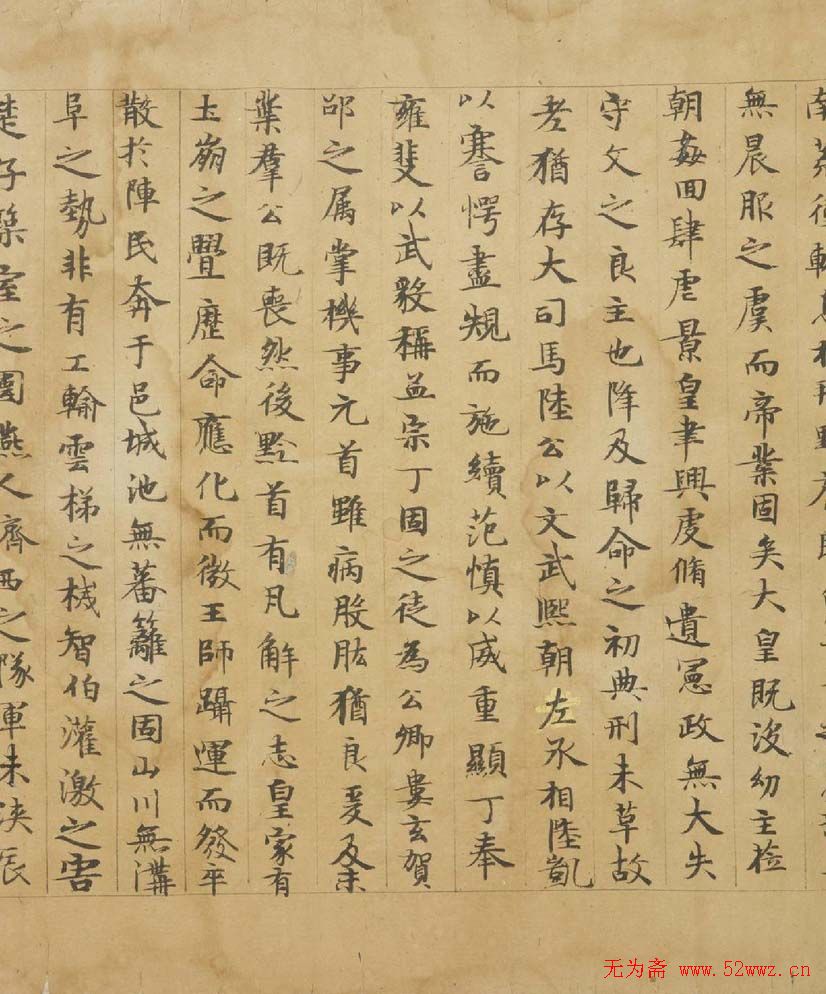 南荒
無晨服之虞而帝業固矣大皇既没幼主莅
朝姦回肆虐景皇聿興虔脩遺憲政無大失
守文之良主也降及歸命之初典刑未草故
老猶存大司馬陸公以文武熙朝左丞相陸凱
以謇愕盡規而施續范慎以威重顯丁奉
雍斐以武毅稱孟宗丁固之徒為公卿婁玄賀
邵之属掌機事元首雖病股肱猶良爰及末
業羣公既喪然後黔首有凡解之志皇家有
土崩之舋歷命應化而微王師躡運而發卒
散於陣民奔于邑城池無蕃籬之固山川無溝
阜之勢非有工輸雲梯之械智伯灌激之害
楚子築室之圍燕人濟西之隊軍未浹辰
无为斋 www.52wwz.cn